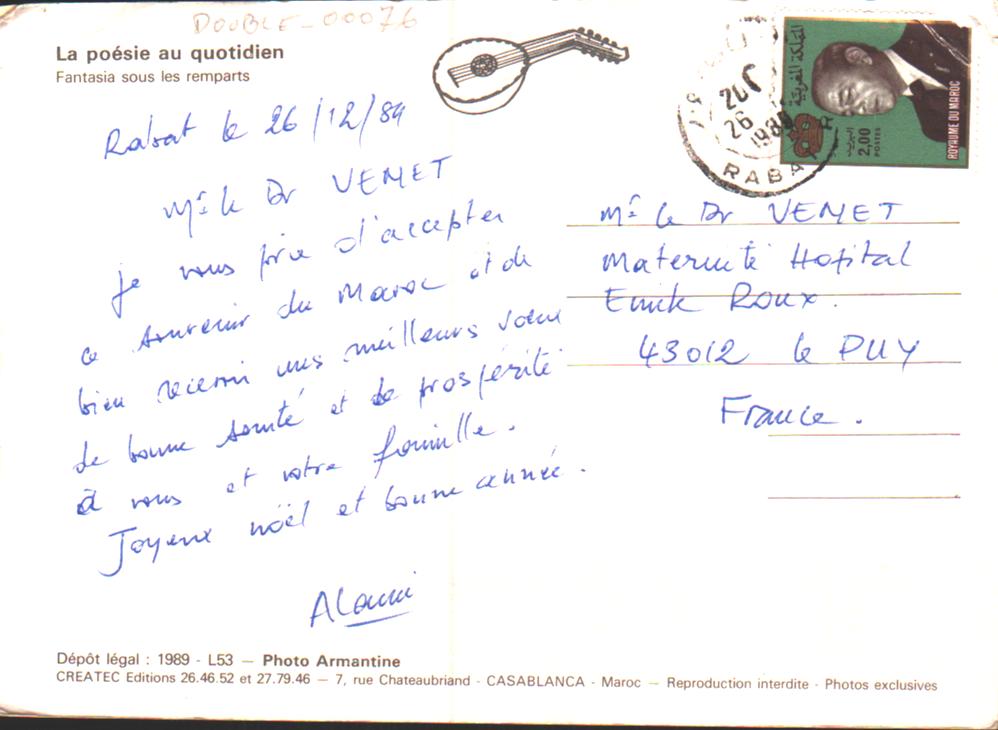 DOUBLE-00076
La poésie au quotidien
Fantasia sous les remparts
Rabat le 26/12/89
Mr le Dr VEMET
je vous prie d'accepter
ce souvenir du Maroc et de
bien recevoir mes meilleurs vœux
de bonne santé et de prospérité
à vous et votre famille.
Joyeux noël et bonne année.
Alami
المملكة المغربية
البريد
2,00
POSTES
ROYAUME DU MAROC
26
1989
RABA
Mr le Dr VEMET
Maternité Hopital
Emile Roux.
43012 le PUY
France.
Dépôt légal : 1989 - L53 — Photo Armantine
CREATEC Editions 26.46.52 et 27.79.46 — 7, rue Chateaubriand - CASABLANCA - Maroc — Reproduction interdite - Photos exclusives